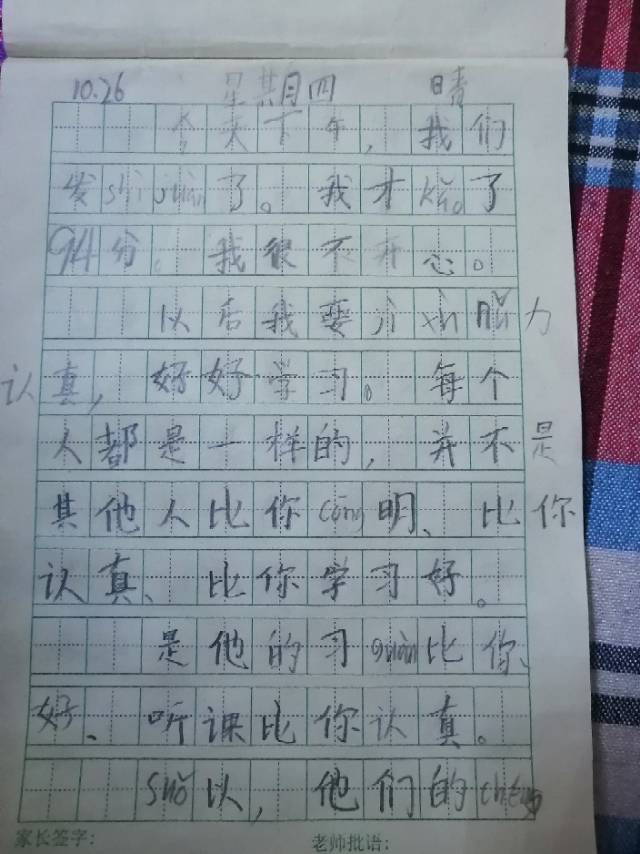 10.26 星其月四 晴
今天下午，我们
发shì juàn了。我才kǎo了
94分。我很不开心。
以后我要jì xù nǔ力
认真，好好学习。每个
人都是一样的，并不是
其他人比你cōng明、比你
认真、比你学习好。
是他的习guàn比你
好、听课比你认真。
suǒ以，他们的chéng
家长签字： 老师批语：